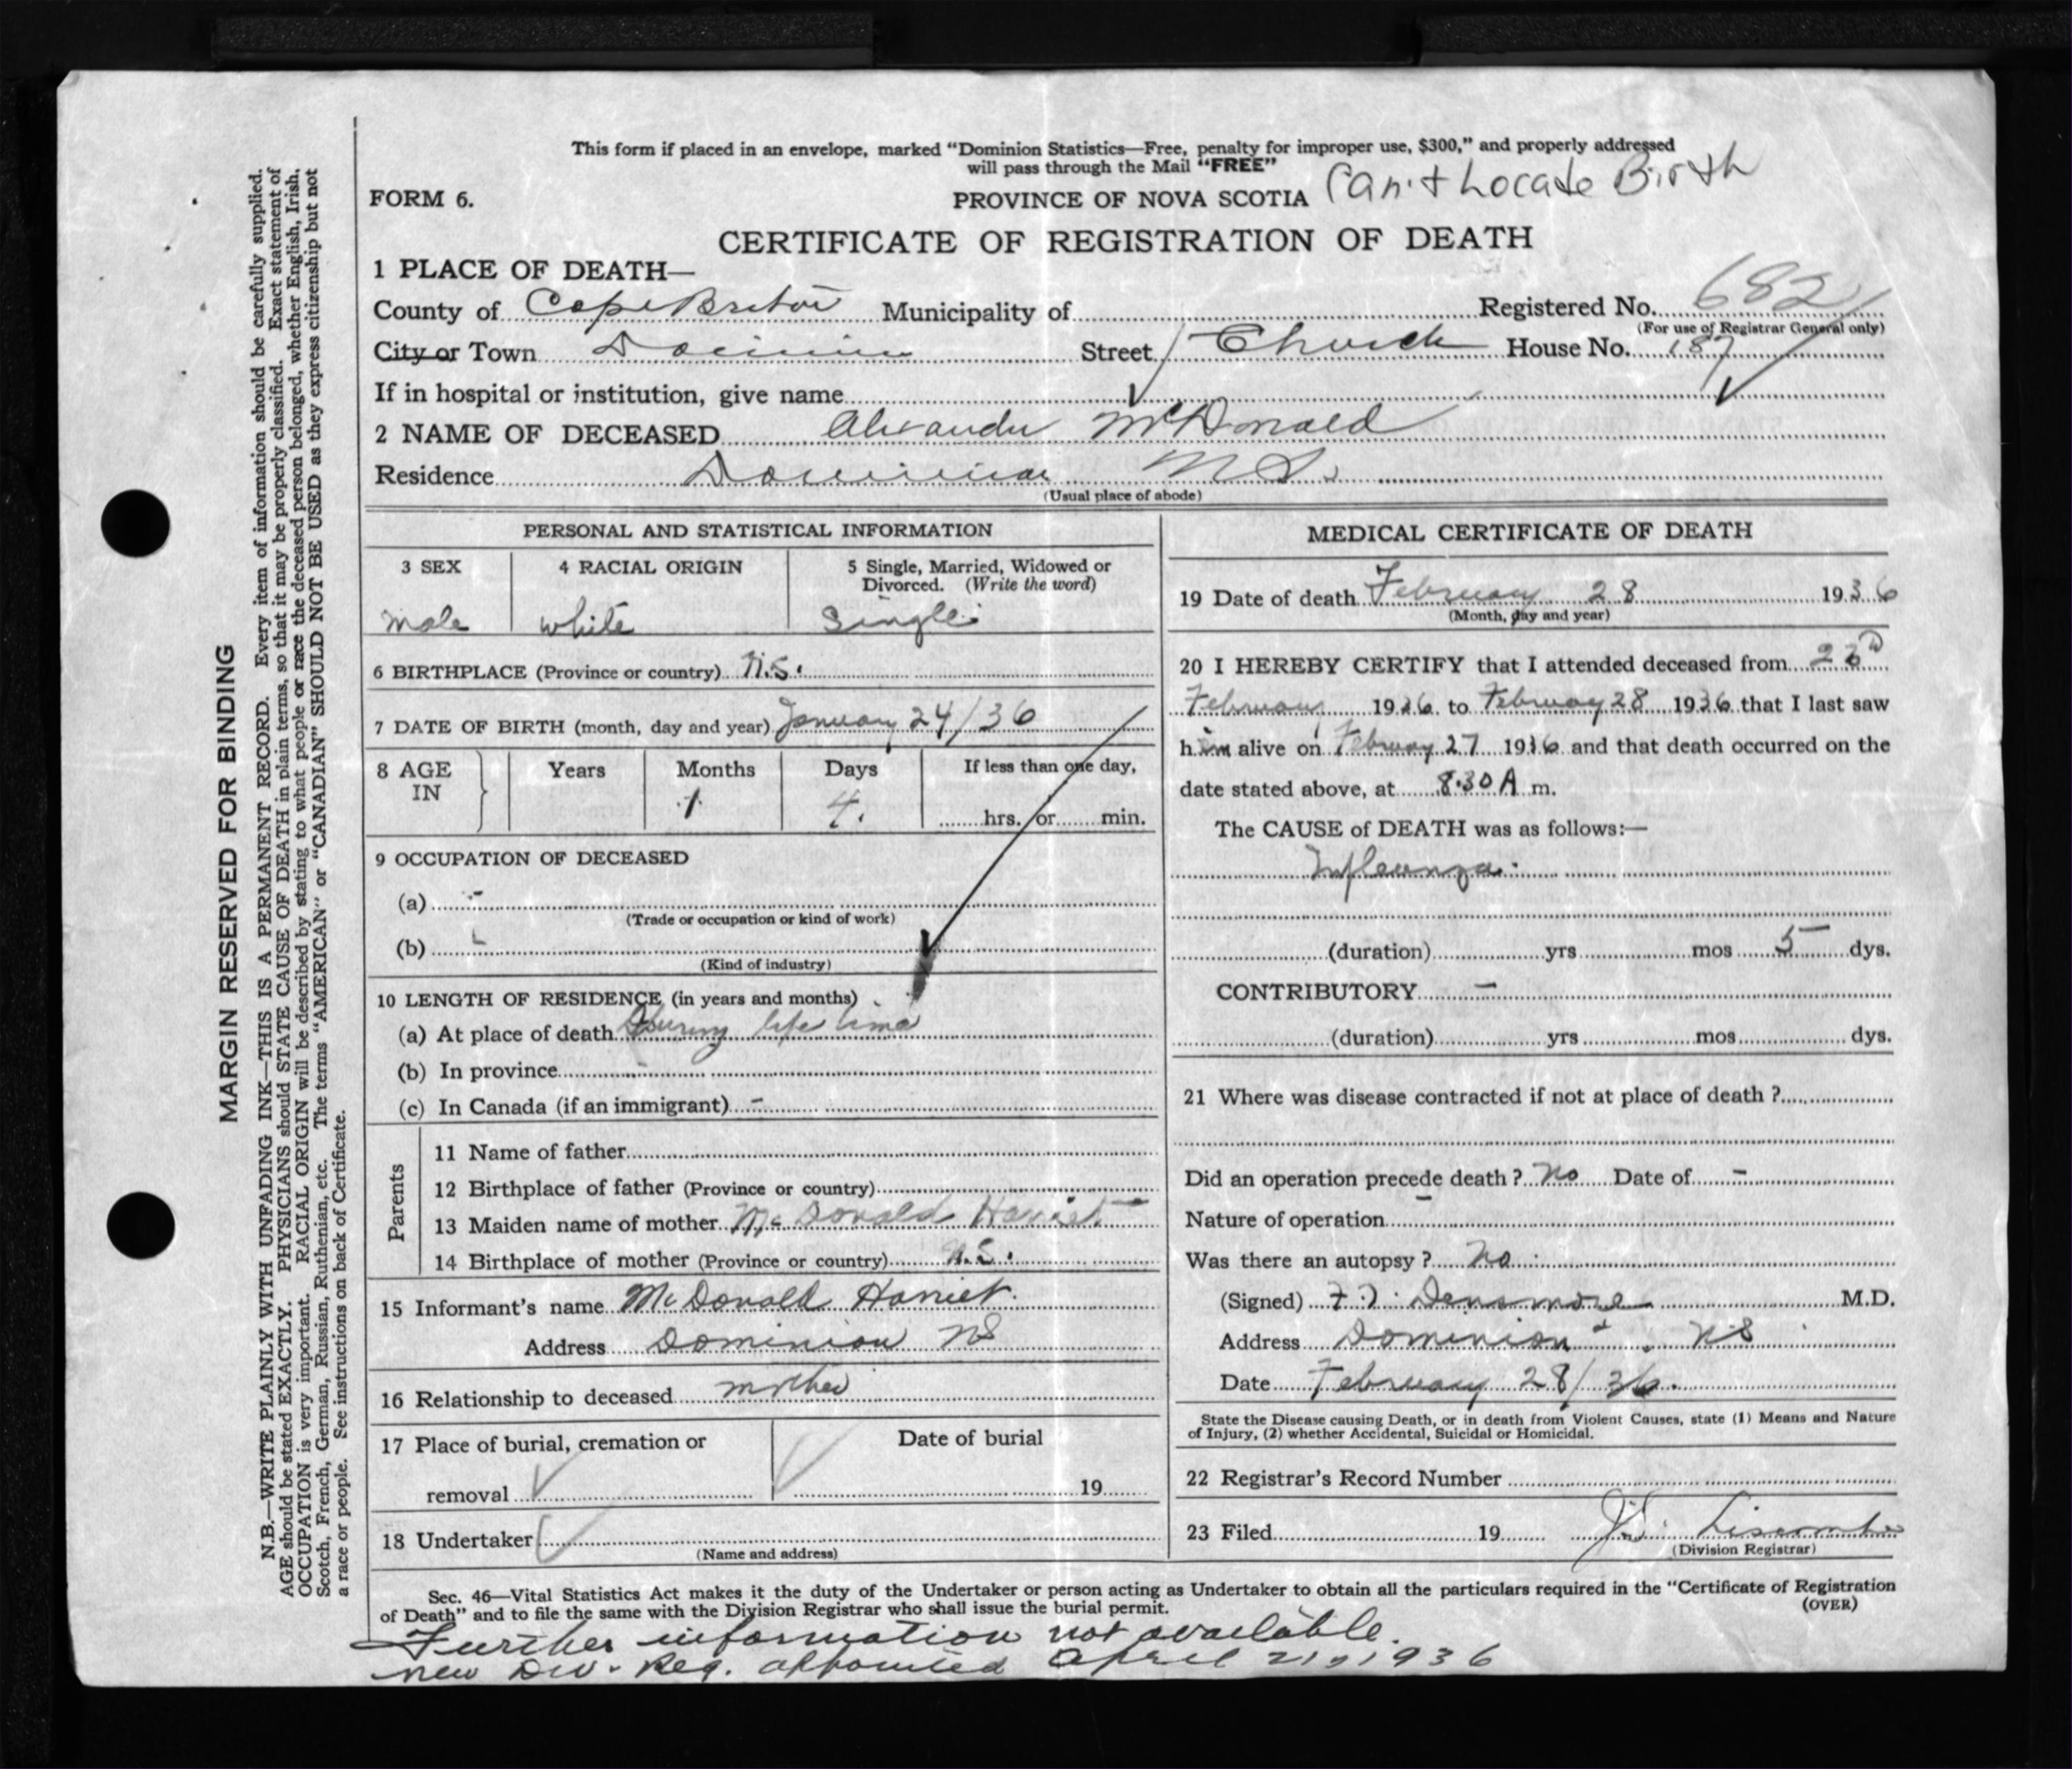 This form if placed in an envelope, marked "Dominion Statistics—Free, penalty for improper use, $300," and properly addressed
will pass through the Mail "FREE"
FORM 6.
PROVINCE OF NOVA SCOTIA Can't Locate Birth
CERTIFICATE OF REGISTRATION OF DEATH
1 PLACE OF DEATH—
County of Cape Breton Municipality of Registered No. 682
(For use of Registrar General only)
City or Town Dominion Street Church House No. 187
If in hospital or institution, give name
2 NAME OF DECEASED Alexander McDonald
Residence Dominion N.S.
(Usual place of abode)
PERSONAL AND STATISTICAL INFORMATION
3 SEX
male
4 RACIAL ORIGIN
white
5 Single, Married, Widowed or
Divorced. (Write the word)
Single
6 BIRTHPLACE (Province or country) N.S.
7 DATE OF BIRTH (month, day and year) January 24/36
8 AGE IN
Years
Months
1
Days
4.
If less than one day,
hrs. or min.
9 OCCUPATION OF DECEASED
(a) -
(Trade or occupation or kind of work)
(b)
(Kind of industry)
10 LENGTH OF RESIDENCE (in years and months)
(a) At place of death During life time
(b) In province
(c) In Canada (if an immigrant) -
Parents
11 Name of father
12 Birthplace of father (Province or country)
13 Maiden name of mother McDonald Harriet
14 Birthplace of mother (Province or country) N.S.
15 Informant's name McDonald Harriet
Address Dominion NS
16 Relationship to deceased mother
17 Place of burial, cremation or
removal
Date of burial
19
18 Undertaker
(Name and address)
MEDICAL CERTIFICATE OF DEATH
19 Date of death February 28 1936
(Month, day and year)
20 I HEREBY CERTIFY that I attended deceased from 23D
February 1936 to February 28 1936 that I last saw
him alive on February 27 1936 and that death occurred on the
date stated above, at 8.30 A m.
The CAUSE of DEATH was as follows:—
Influenza
(duration) yrs mos 5 dys.
CONTRIBUTORY -
(duration) yrs mos dys.
21 Where was disease contracted if not at place of death ?
Did an operation precede death ? No Date of -
Nature of operation -
Was there an autopsy ? No
(Signed) Densmore M.D.
Address Dominion NS
Date February 28/36.
State the Disease causing Death, or in death from Violent Causes, state (1) Means and Nature
of Injury, (2) whether Accidental, Suicidal or Homicidal.
22 Registrar's Record Number
23 Filed 19 Liscombe
(Division Registrar)
Sec. 46—Vital Statistics Act makes it the duty of the Undertaker or person acting as Undertaker to obtain all the particulars required in the "Certificate of Registration
of Death" and to file the same with the Division Registrar who shall issue the burial permit.
(OVER)
Further information not available.
new Div. Reg. appointed April 21, 1936
MARGIN RESERVED FOR BINDING
N.B.—WRITE PLAINLY WITH UNFADING INK—THIS IS A PERMANENT RECORD. Every item of information should be carefully supplied.
AGE should be stated EXACTLY. PHYSICIANS should STATE CAUSE OF DEATH in plain terms, so that it may be properly classified. Exact statement of
OCCUPATION is very important. RACIAL ORIGIN will be described by stating to what people or race the deceased person belonged, whether English, Irish,
Scotch, French, German, Russian, Ruthenian, etc. The terms "AMERICAN" or "CANADIAN" SHOULD NOT BE USED as they express citizenship but not
a race or people. See instructions on back of Certificate.